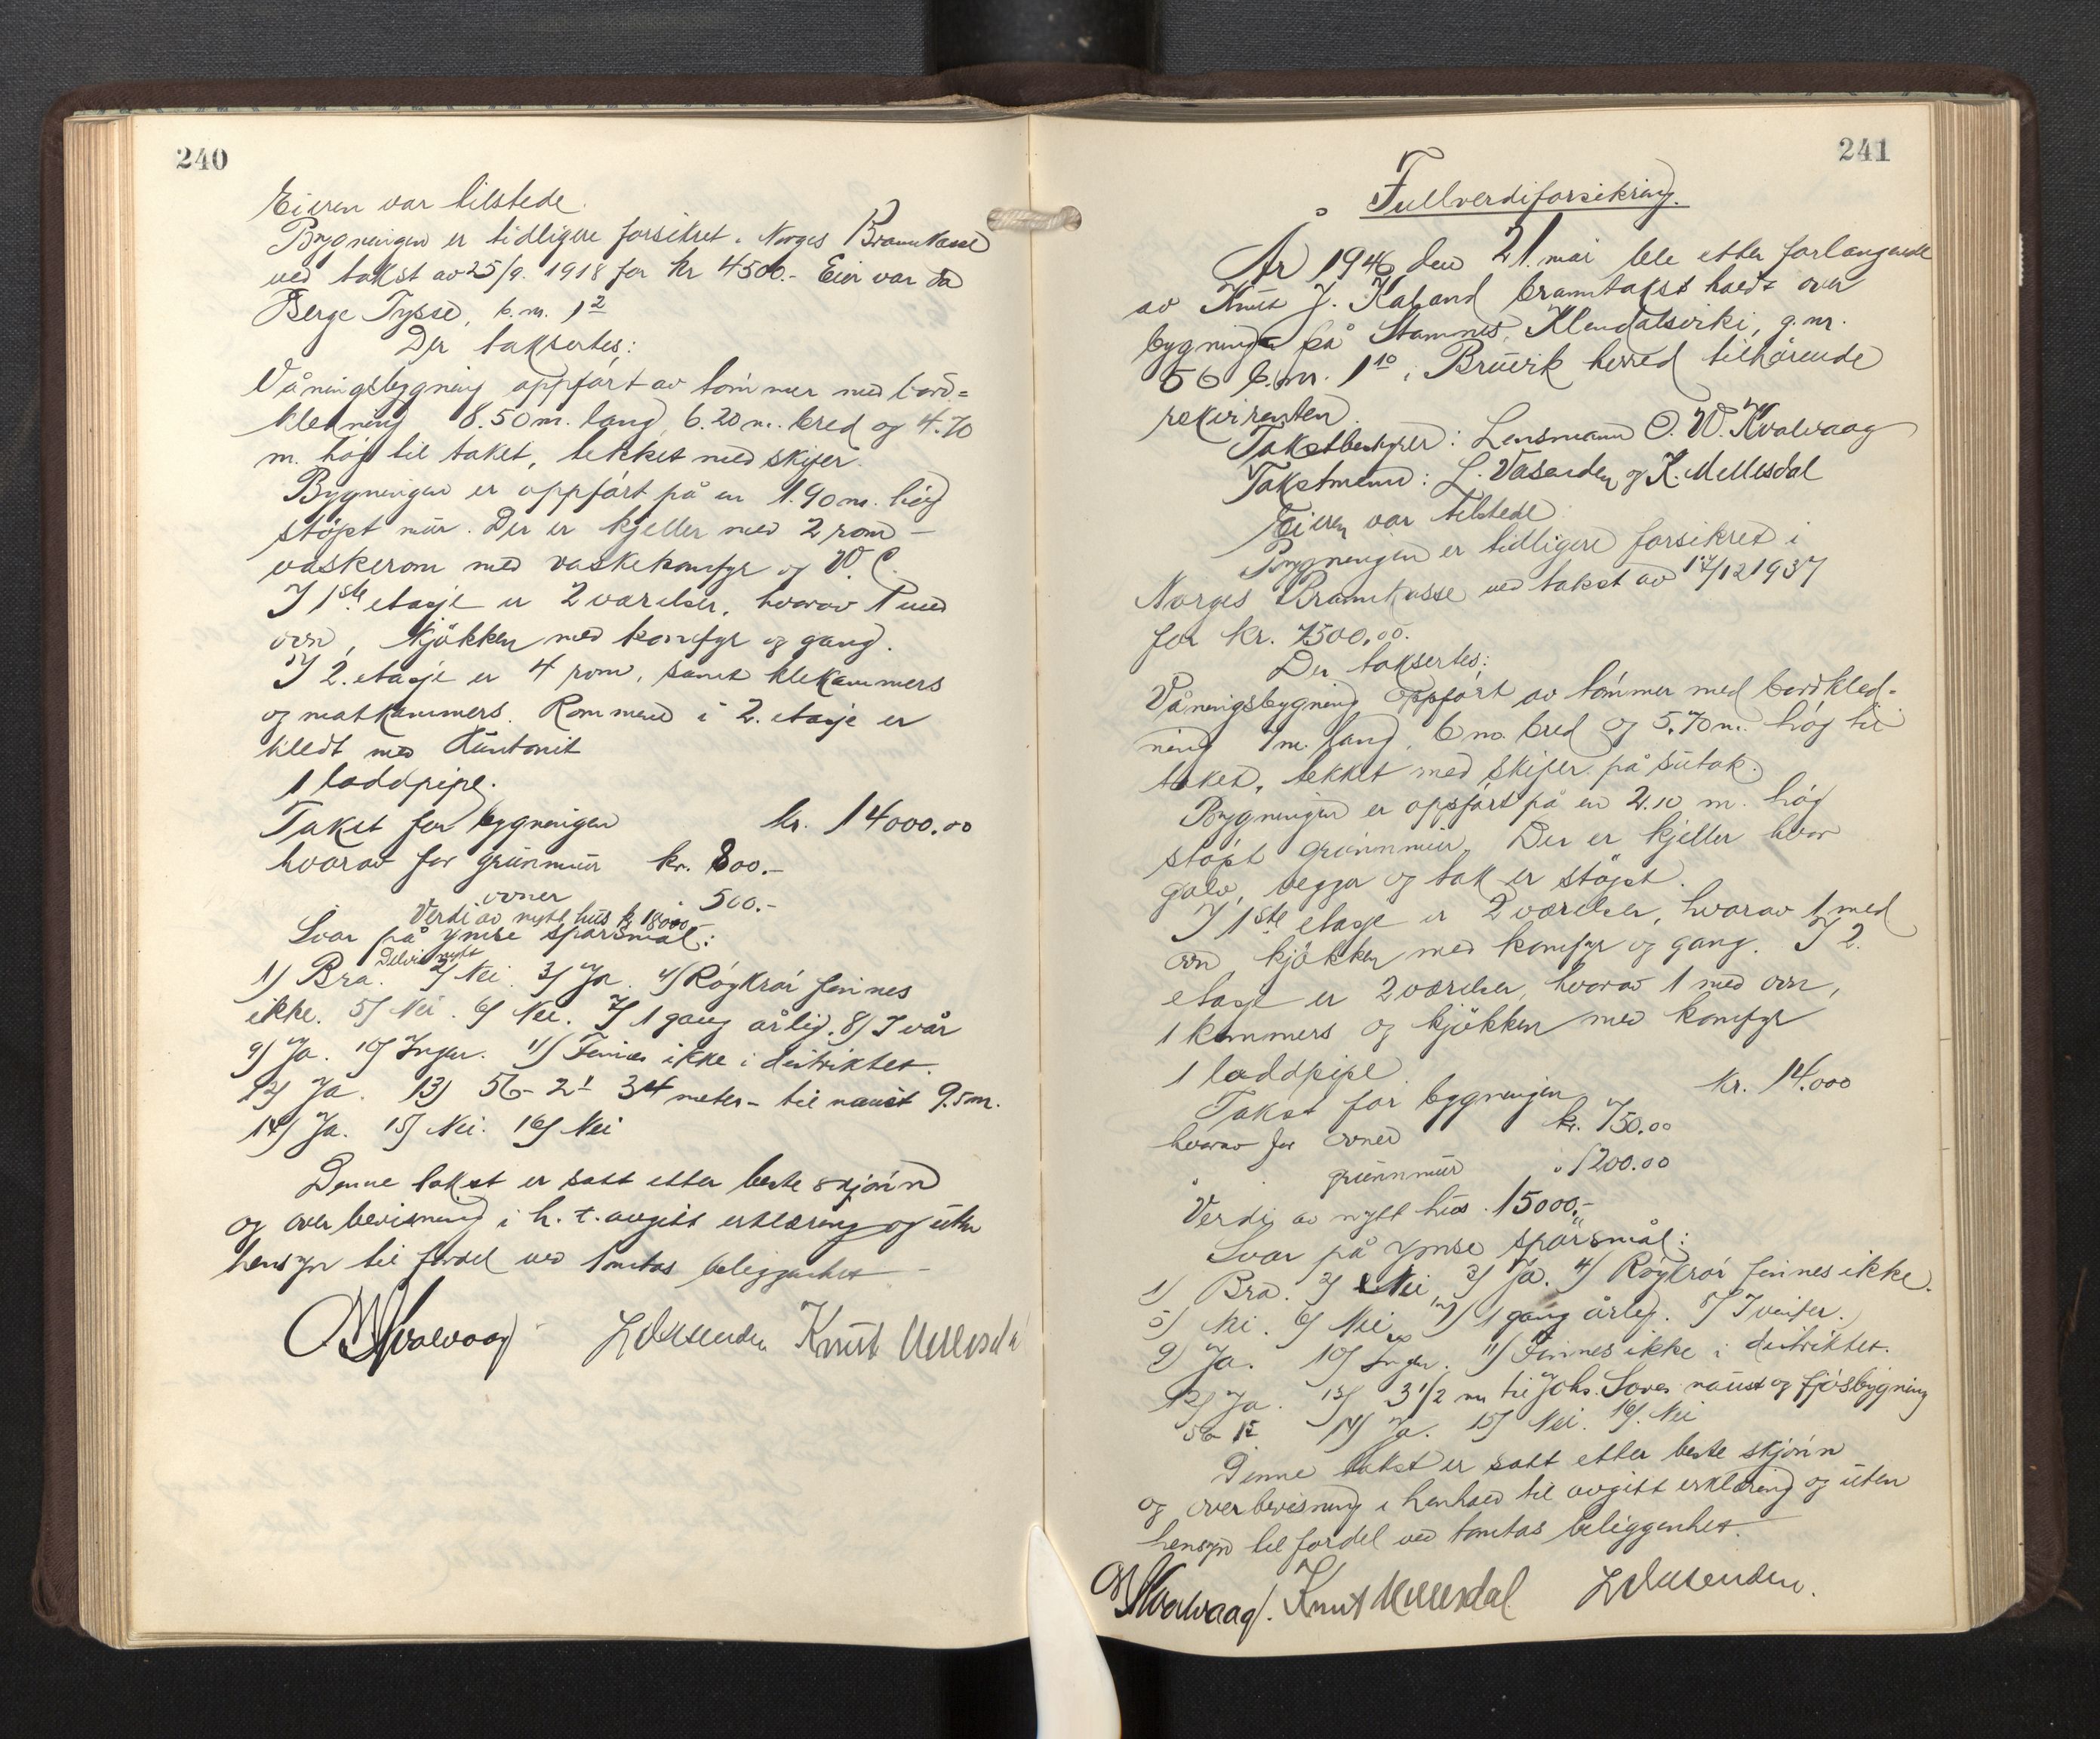 240
Eieren var tilstede.
Bygningen er tidligere forsikret i Norges Brannkasse
ved takst av 25/9. 1918 for kr 4500.- Eier var da
Berge Tysse, b.nr. 1²
Der taksertes:
Våningsbygning oppført av tømmer med bord=
kledning 8.50 m. lang, 6.20 m. bred og 4.70
m. høg til taket, tekket med skifer.
Bygningen er oppført på en 1.90 m. høg
støpt mur. Der er kjeller med 2 rom -
vaskerom med vaskekomfyr og W.C.
I 1ste etasje er 2 værelser, hvorav 1 med
ovn, kjøkken med komfyr og gang.
I 2. etasje er 4 rom, samt klekammers
og matkammers. Rommene i 2. etasje er
kledt med Huntonit
1 loddpipe.
Takst for bygningen kr. 14000.00
hvorav for grunnmur kr. 800.-
ovner " 500.-
Verdi av nytt hus kr 18000
Svar på ymse spørsmål:
Delvis nytt
1) Bra. 2) Nei. 3) Ja. 4) Røykrør finnes
ikke. 5) Nei. 6) Nei. 7) 1 gang årlig. 8) I vår
9) Ja. 10) Ingen. 11) Finnes ikke i distriktet.
12) Ja. 13) 56-2¹ 34 meter - til naust 9.5 m.
14) Ja. 15) Nei. 16) Nei
Denne takst er satt etter beste skjønn
og overbevisning i h. t. avgitt erklæring og uten
hensyn til fordel ved tomtas beliggenhet -
O W Kvalvaag L Vasenden Knut Mellesdal
241
Fullverdiforsikring.
År 1946 den 21. mai ble etter forlangende
av Knut J. Kaland branntakst holdt over
bygningen på Stamnes, Klendalsvirki, g.nr.
56 b.nr. 1¹⁰ i Bruvik herred tilhørende
rekvirenten.
Takstbestyrer: Lensmann O. W. Kvalvaag
Takstmenn: L. Vasenden og K. Mellesdal
Eieren var tilstede
Bygningen er tidligere forsikret i
Norges Brannkasse ved takst av 17/12 1937
for kr. 7500.00.
Der taksertes:
Våningsbygning oppført av tømmer med bordkled-
ning 7 m. lang, 6 m. bred og 5.70 m. høg til
taket, tekket med skifer på sutak.
Bygningen er oppført på en 2.10 m. høg
støpt grunnmur. Der er kjeller hvor
golv, vegger og tak er støpt.
I 1ste etasje er 2 værelser, hvorav 1 med
ovn, kjøkken med komfyr og gang. I 2.
etasje er 2 værelser, hvorav 1 med ovn,
1 kammers og kjøkken med komfyr
1 loddpipe.
Takst for bygningen kr. 14.000
hvorav for ovner kr. 750.00
" " grunnmur " 1200.00
Verdi av nytt hus 15000.-
Svar på ymse spørsmål:
1) Bra. 2) Nei 3) Ja. 4) Røykrør finnes ikke.
5) Nei. 6) Nei 7) 1 gang årlig. 8) I vinter.
9) Ja. 10) Ingen. 11) Finnes ikke i distriktet.
12) Ja. 13) 3 1/2 m til Johs. naust og fjøsbygning
56 14) Ja. 15) Nei. 16) Nei
Denne takst er satt etter beste skjønn
og overbevisning i henhold til avgitt erklæring og uten
hensyn til fordel ved tomtas beliggenhet.
O W Kvalvaag. Knut Mellesdal L Vasenden.